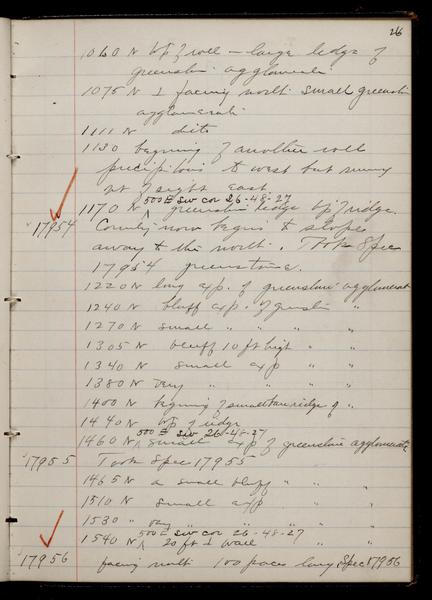 26
1060 N top of roll - large ledge of
greenstone agglomerate
1075 N ⊥ facing north small greenstone
agglomerate
1111 N ditto
1130 begining of another roll
precipitous to west but runing
out of sight east.
500 E SW cor 26-48-27
1170 N greenstone ledge top of ridge.
17954 Country now begins to slope
away to the north. Took Spec
17954 greenstone.
1220 N long exp. of greenstone agglomerat
1240 N bluff exp. of greenstone "
1270 N small " " " "
1305 N bluff 10 ft high " "
1340 N small exp " "
1380 N very " " " "
1400 N begining of small ridge of "
1440 N top of ridge
500 E SW 26-48-27
1460 N small exp of greenstone agglomerate
17955 Took Spec 17955
1465 N a small bluff " "
1510 N small exp " "
1530 " very " " " "
500 E SW cor 26-48-27
1540 N 20 ft ⊥ wall " "
17956 facing north 100 paces long Spec 17956